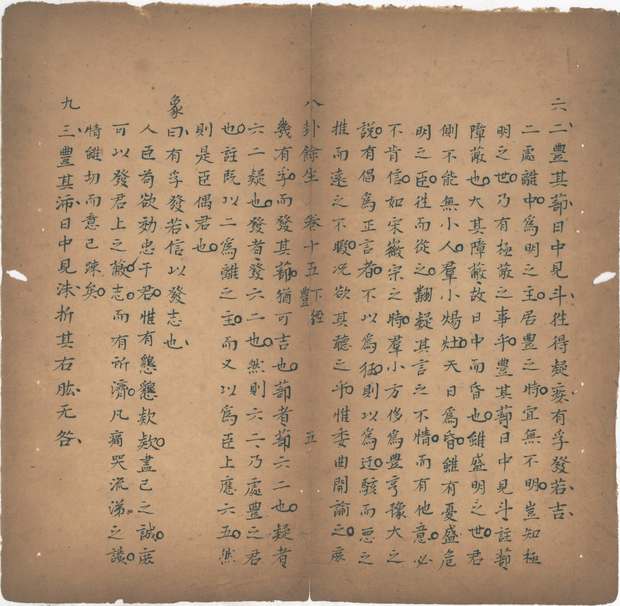 六二豐其蔀日中見斗徃得疑疾有孚發若吉
二處離中爲明之主居豐之時宜無不明豈知極
明之世乃有極蔽之事乎豐其蔀日中見斗註蔀
障蔽也大其障蔽故日中而昏也雖盛明之世君
側不能無小人羣小煬灶天日爲昏雖有憂盛危
明之臣徃而從之翻疑其言之不情而有他意必
不肯信如宋徽宗之時羣小方侈爲豐亨豫大之
說有倡爲正言者不以爲狂則以爲迂駭而惡之
推而遠之不暇况欲其聽之乎惟委曲開論之庶
八卦餘生 卷十五 下經 豐 五
幾有孚而發其蔀猶可吉也蔀者蔀六二也疑者
六二疑也發者發六二也然則六二乃處豐之君
也註旣以二爲離之主而又以爲臣上應六五然
則是臣偶君也
象曰有孚發若信以發志也
人臣苟欲効忠于君惟有懇懇欵欵盡己之誠庶
可以發君上之蔽志而有所濟凡痛哭流涕之談
情雖切而意已疎矣
九三豐其沛日中見沬折其右肱无咎